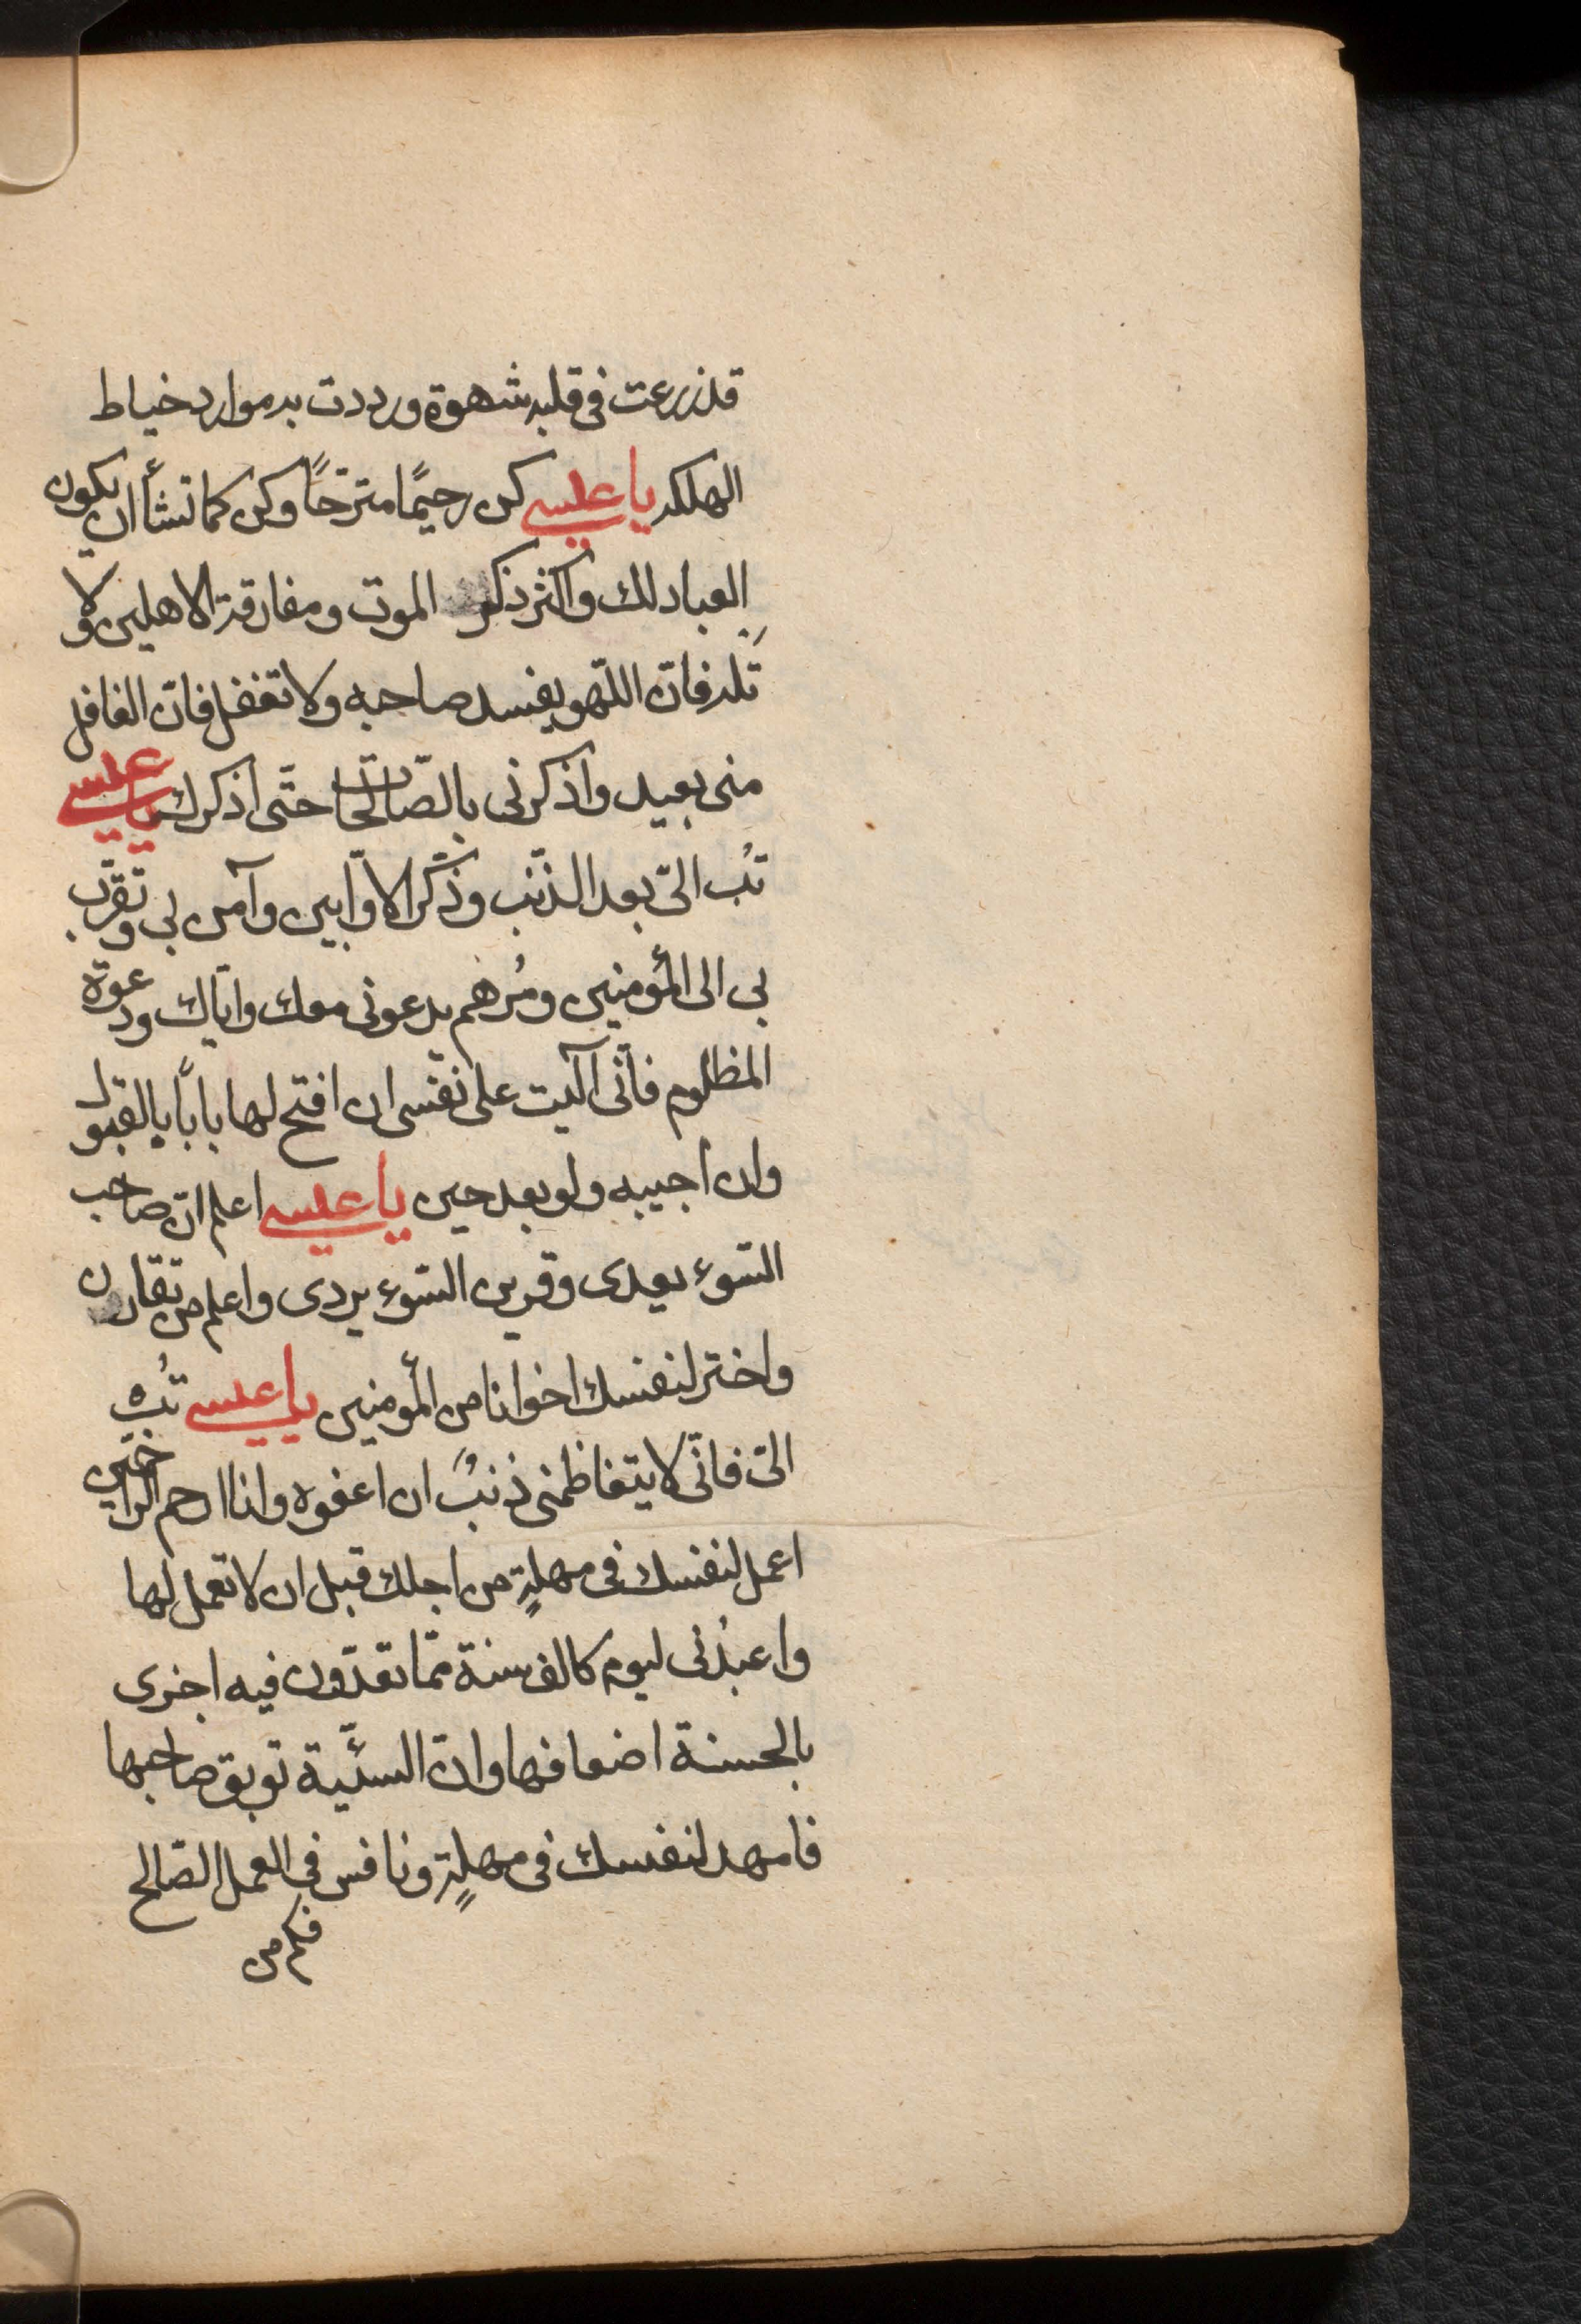 قد زرعت فى قلبه شهوة ورددت به موارد خياط
الهلكه يا عيسى كن رحيمًا مترحمًا وكن كما تشأ ان يكون
العباد لك واكثر ذكر الموت ومفارقة الاهلين ولا
تله فان اللّهو يفسد صاحبه ولا تغفل فان الغافل
منى بعيد واذكرنى بالصّالحات حتّى اذكرك يا عيسى
تُب الىّ بعد الذّنب وذكّر الاوّابين وآمن بى وتقرّب
بى الى المؤمنين ومُرهم يدعونى معك واياك ودعوة
المظلوم فانّى آليت على نفسى ان افتح لها بابًا بالقبول
وان اجيبه ولو بعد حين يا عيسى اعلم انّ صاحب
السّوء يعدى وقرين السّوء يردى واعلم من تقارن
واختر لنفسك اخوانا من المؤمنين يا عيسى تُب
الىّ فانّى لا يتعاظمنى ذنبٌ ان اعفوه وانا ارحم الراحمين
اعمل لنفسك فى مهلةٍ من اجلك قبل ان لا تعمل لها
واعبُدنى ليوم كالف سنة ممّا تعدّون فيه اجزى
بالحسنة اضعافها وان السّيئة توبق صاحبها
فامهد لنفسك فى مهلةٍ ونافس فى العمل الصّالح
فكم من